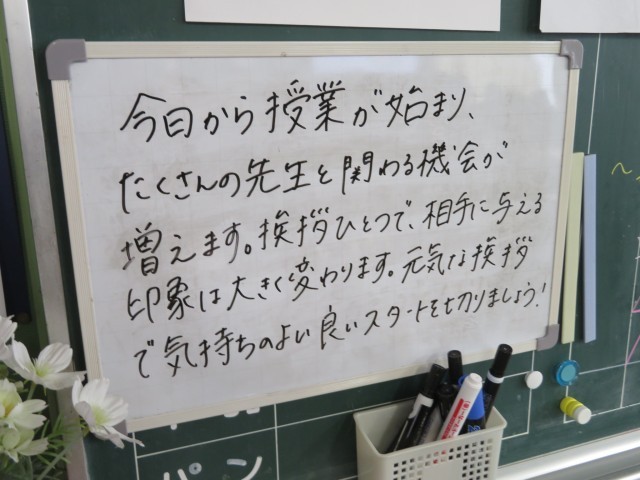 今日から授業が始まり、
たくさんの先生と関わる機会が
増えます。挨拶ひとつで、相手に与える
印象は大きく変わります。元気な挨拶
で気持ちのよい良いスタートを切りましょう!
パン